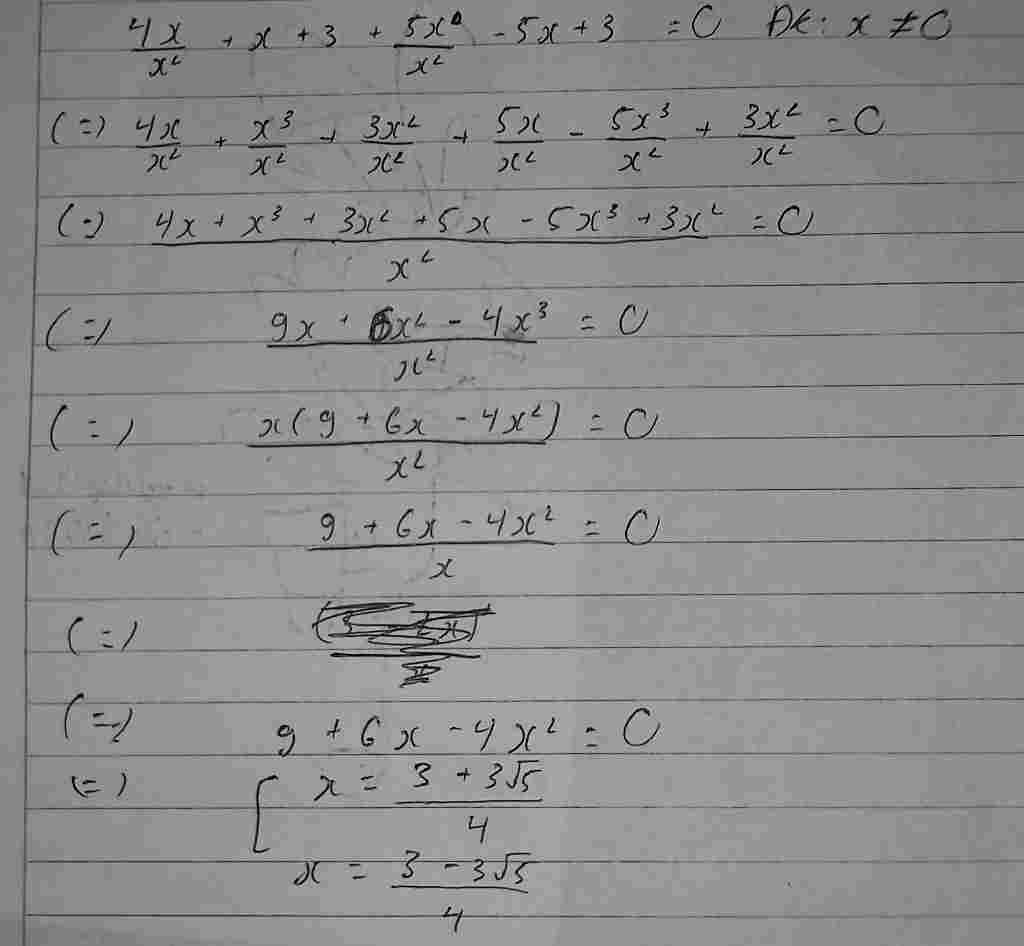 4x/x² + x + 3 + 5x/x² - 5x + 3 = 0 ĐK: x ≠ 0
(=) 4x/x² + x³/x² + 3x²/x² + 5x/x² - 5x³/x² + 3x²/x² = 0
(=) (4x + x³ + 3x² + 5x - 5x³ + 3x²)/x² = 0
(=) (9x + 6x² - 4x³)/x² = 0
(=) x(9 + 6x - 4x²)/x² = 0
(=) (9 + 6x - 4x²)/x = 0
(=)
(=) 9 + 6x - 4x² = 0
(=) [ x = (3 + 3√5)/4
x = (3 - 3√5)/4